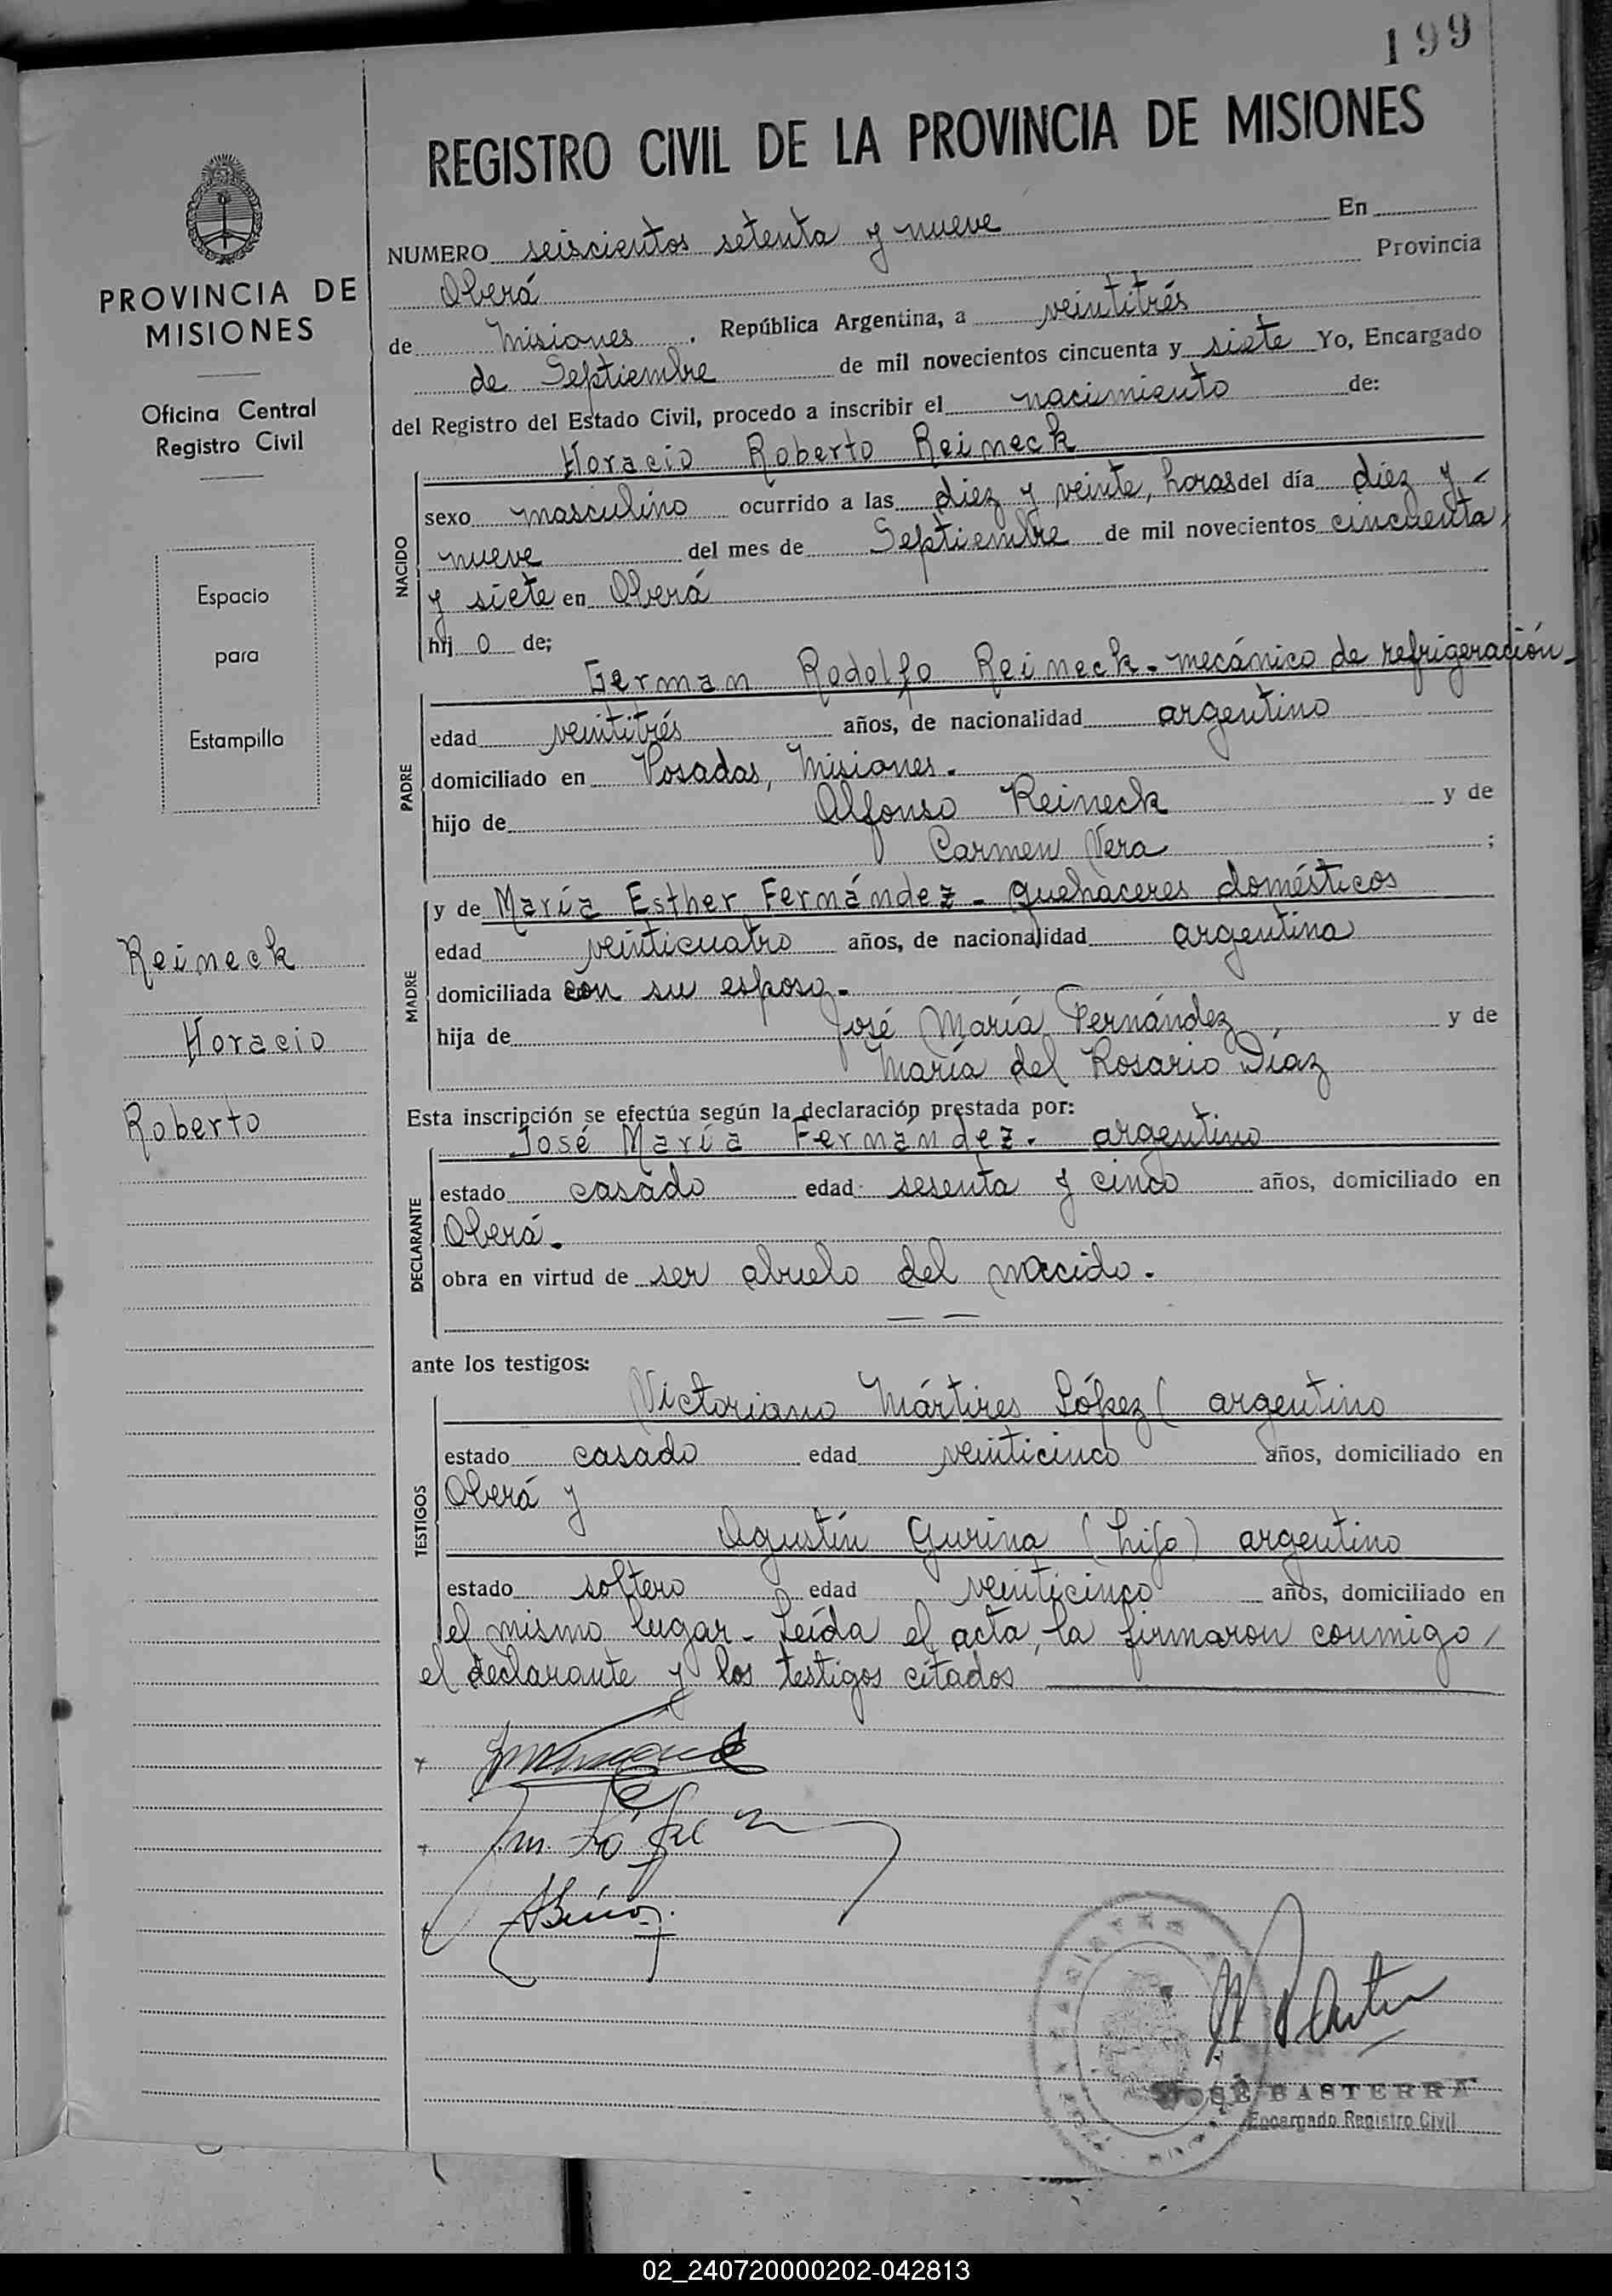 199
REGISTRO CIVIL DE LA PROVINCIA DE MISIONES
PROVINCIA DE
MISIONES
Oficina Central
Registro Civil
Espacio
para
Estampilla
Reineck
Horacio
Roberto
NUMERO seiscientos setenta y nueve En
Oberá Provincia
de Misiones . República Argentina, a veintitrés
de Septiembre de mil novecientos cincuenta y siete Yo, Encargado
del Registro del Estado Civil, procedo a inscribir el nacimiento de:
Horacio Roberto Reineck
NACIDO
sexo masculino ocurrido a las diez y veinte, horas del día diez y -
nueve del mes de Septiembre de mil novecientos cincuenta
y siete en Oberá
hij o de;
German Rodolfo Reineck - mecánico de refrigeración -
PADRE
edad veintitrés años, de nacionalidad argentino
domiciliado en Posadas, Misiones.
hijo de Alfonso Reineck y de
Carmen Vera ;
MADRE
y de María Esther Fernández - quehaceres domésticos
edad veinticuatro años, de nacionalidad argentina
domiciliada con su esposo -
hija de José María Fernández y de
María del Rosario Díaz
Esta inscripción se efectúa según la declaración prestada por:
José María Fernández - argentino
DECLARANTE
estado casado edad sesenta y cinco años, domiciliado en
Oberá.
obra en virtud de ser abuelo del nacido.
ante los testigos:
Victoriano Mártires López ( argentino
TESTIGOS
estado casado edad veinticinco años, domiciliado en
Oberá y
Agustín Gurina (hijo) argentino
estado soltero edad veinticinco años, domiciliado en
el mismo lugar - Leída el acta, la firmaron conmigo
el declarante y los testigos citados
JOSÉ BASTERRA
Encargado Registro Civil
02_240720000202-042813